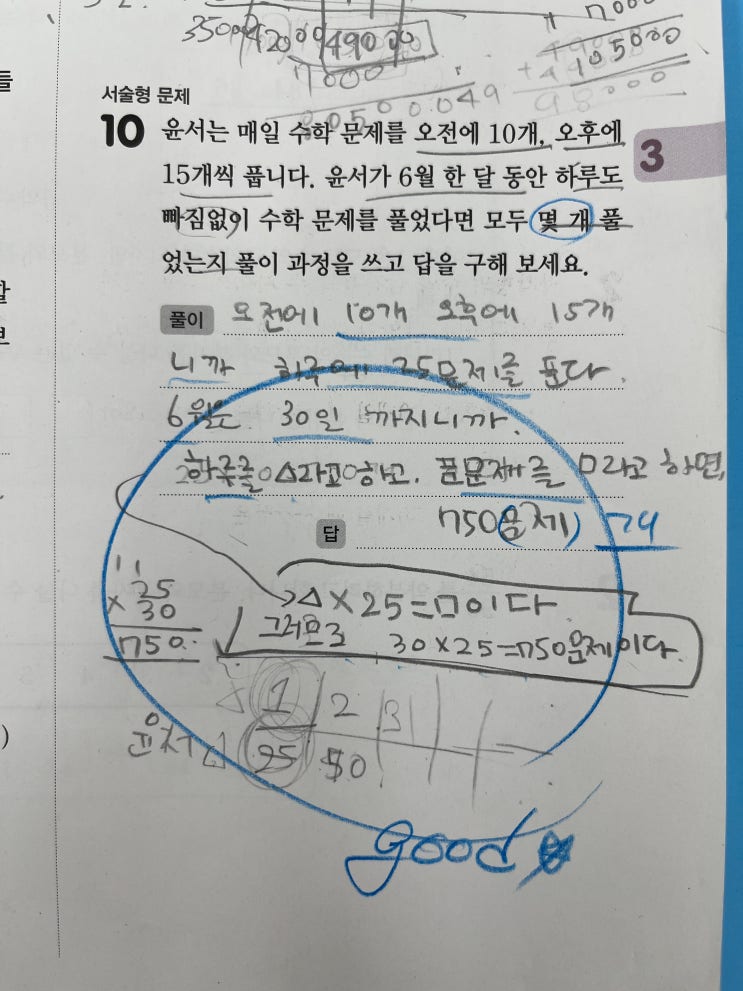 35000 42000 49000
7000
105000
98000
서술형 문제
10 윤서는 매일 수학 문제를 오전에 10개, 오후에
15개씩 풉니다. 윤서가 6월 한 달 동안 하루도
빠짐없이 수학 문제를 풀었다면 모두 몇 개 풀
었는지 풀이 과정을 쓰고 답을 구해 보세요.
3
풀이 오전에 10개 오후에 15개
니까 하루에 25문제를 푼다.
6월은 30일 까지니까.
하루를 △라고 하고. 푼문제를 □라고 하면,
답 750(문제) 개
△×25=□이다
그러므로 30×25=750문제이다.
11
25
×30
750
△ 1 2 3
25 50
good